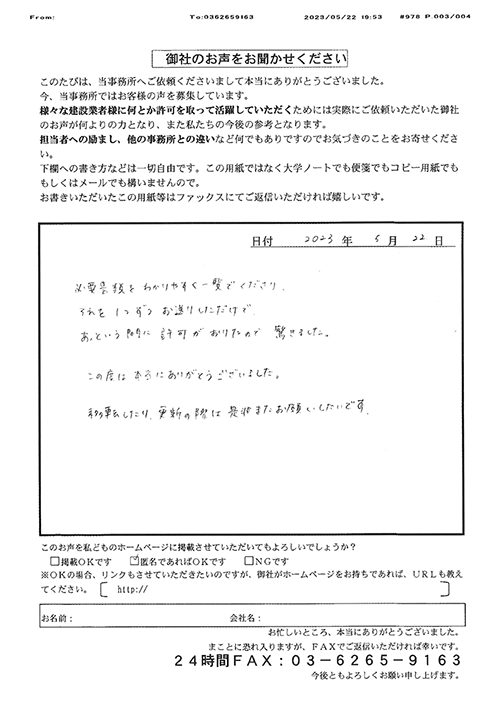 From: To:0362659163 2023/05/22 19:53 #978 P.003/004
御社のお声をお聞かせください
このたびは、当事務所へご依頼くださいまして本当にありがとうございました。
今、当事務所ではお客様の声を募集しています。
様々な建設業者様に何とか許可を取って活躍していただくためには実際にご依頼いただいた御社
のお声が何よりの力となり、また私たちの今後の参考となります。
担当者への励まし、他の事務所との違いなど何でもありですのでお気づきのことをお寄せくださ
い。
下欄への書き方などは一切自由です。この用紙ではなく大学ノートでも便箋でもコピー用紙でも
もしくはメールでも構いませんので。
お書きいただいたこの用紙等はファックスにてご返信いただければ嬉しいです。
日付 2023 年 5 月 22 日
必要書類をわかりやすく一覧でくださり、
それを1つずつお送りしただけで、
あっという間に許可がおりたので驚きました。
この度は本当にありがとうございました。
移転したり、更新の際は是非またお願いしたいです。
このお声を私どものホームページに掲載させていただいてもよろしいでしょうか？
□掲載OKです ☑匿名であればOKです □NGです
※OKの場合、リンクもさせていただきたいのですが、御社がホームページをお持ちであれば、URLも教え
てください。〔 http:// 〕
お名前： 会社名：
お忙しいところ、本当にありがとうございました。
まことに恐れ入りますが、FAXでご返信いただければ幸いです。
24時間FAX：03－6265－9163
今後ともよろしくお願い申し上げます。